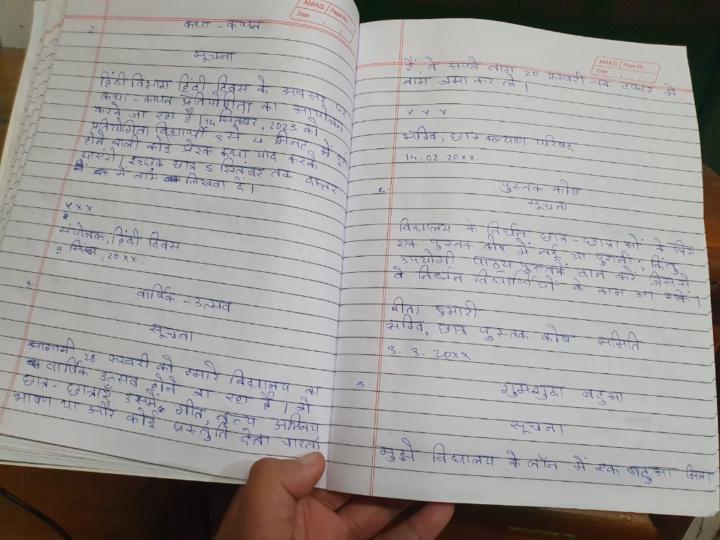 AMAG Page No.
Date
2.
कथा - कथन
सूचना
हिंदी विभाग हिंदी दिवस के अवसर पर
कथा - कथन प्रतियोगिता का आयोजन
करने जा रहा है। 14 सितंबर, 2023 को
प्रतियोगिता विद्यार्थी 3 से 4 मिनट में पूरी
होने वाली कोई प्रेरक कथा याद करके
इच्छुक छात्र 5 सितंबर तक दफ्तर
में नाम लिखवा दें।
x x x
संयोजक, हिंदी दिवस
3 सितंबर, 20xx.
3.
वार्षिक - उत्सव
सूचना
आगामी 28 फरवरी को हमारे विद्यालय का
वार्षिक उत्सव होने जा रहा है। जो
छात्र - छात्राएँ उसमें गीत, नृत्य अभिनय
भाषण या और कोई प्रस्तुति देना चाहते
AMAG Page No.
Date
हैं वे अपने नाम 20 फरवरी तक दफ्तर में
नाम जमा कर लें।
x x x
सचिव, छात्र कल्याण परिषद
14.02.20xx.
4.
पुस्तक कोष
सूचना
विद्यालय के निर्धन छात्र - छात्राओं के लिए
एक पुस्तक कोष में नई या पुरानी, किंतु
उपयोगी पाठ्य पुस्तकें दान करें जिससे
वे निर्धन विद्यार्थियों के काम आ सकें।
कुमारी
सचिव, छात्र पुस्तक कोष समिति
3.3.20xx
5.
गुमशुदा बटुआ
सूचना
मुझे विद्यालय के लॉन में एक बटुआ मिला